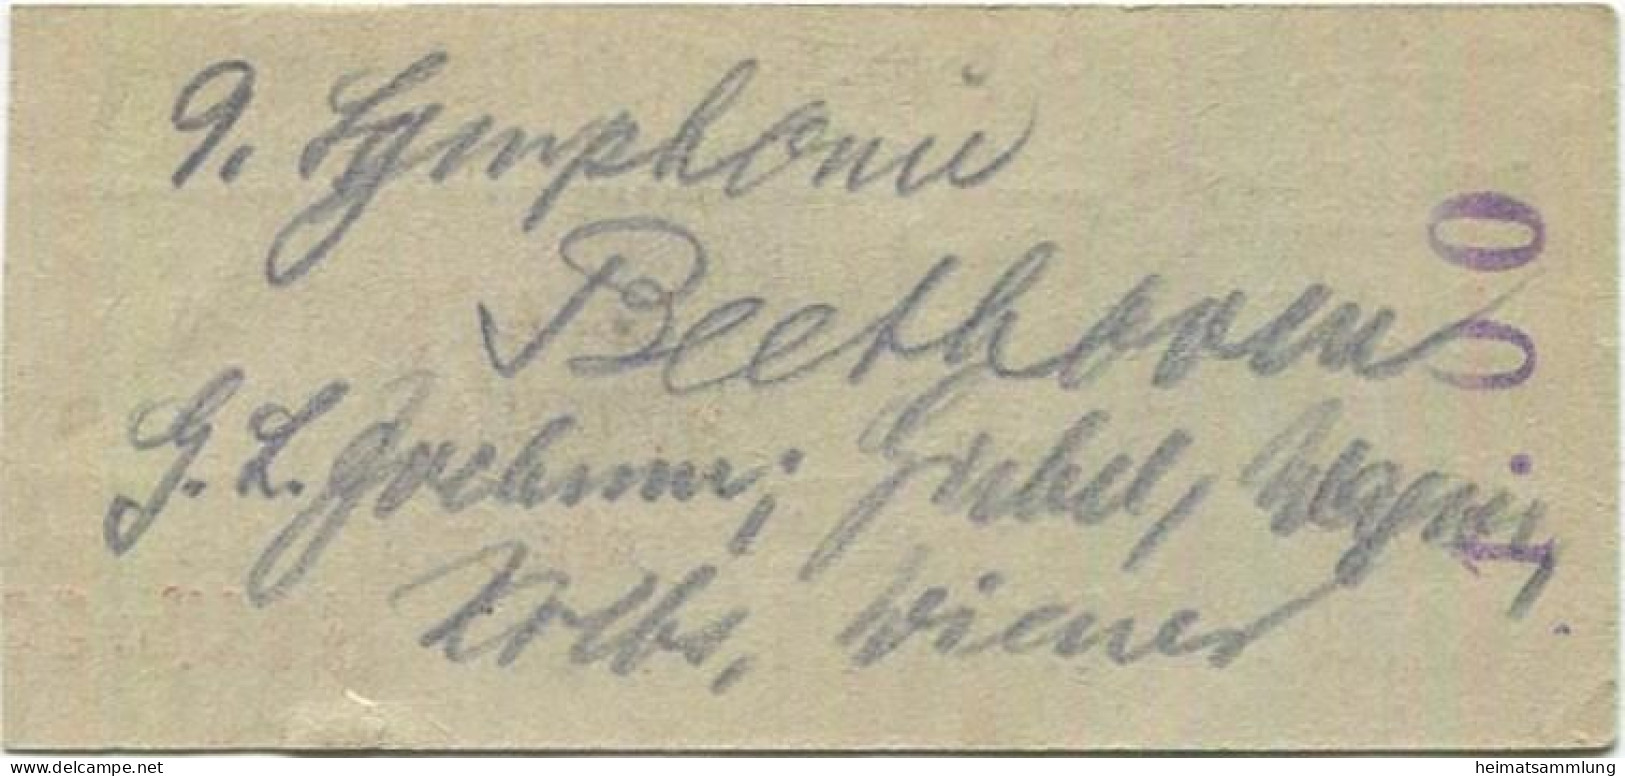 9. Symphonie
Beethoven
G. L. Jochum; Giebel, Wagner,
Wiener
1.00
www.delcampe.net/id/heimatsammlung
heimatsammlung